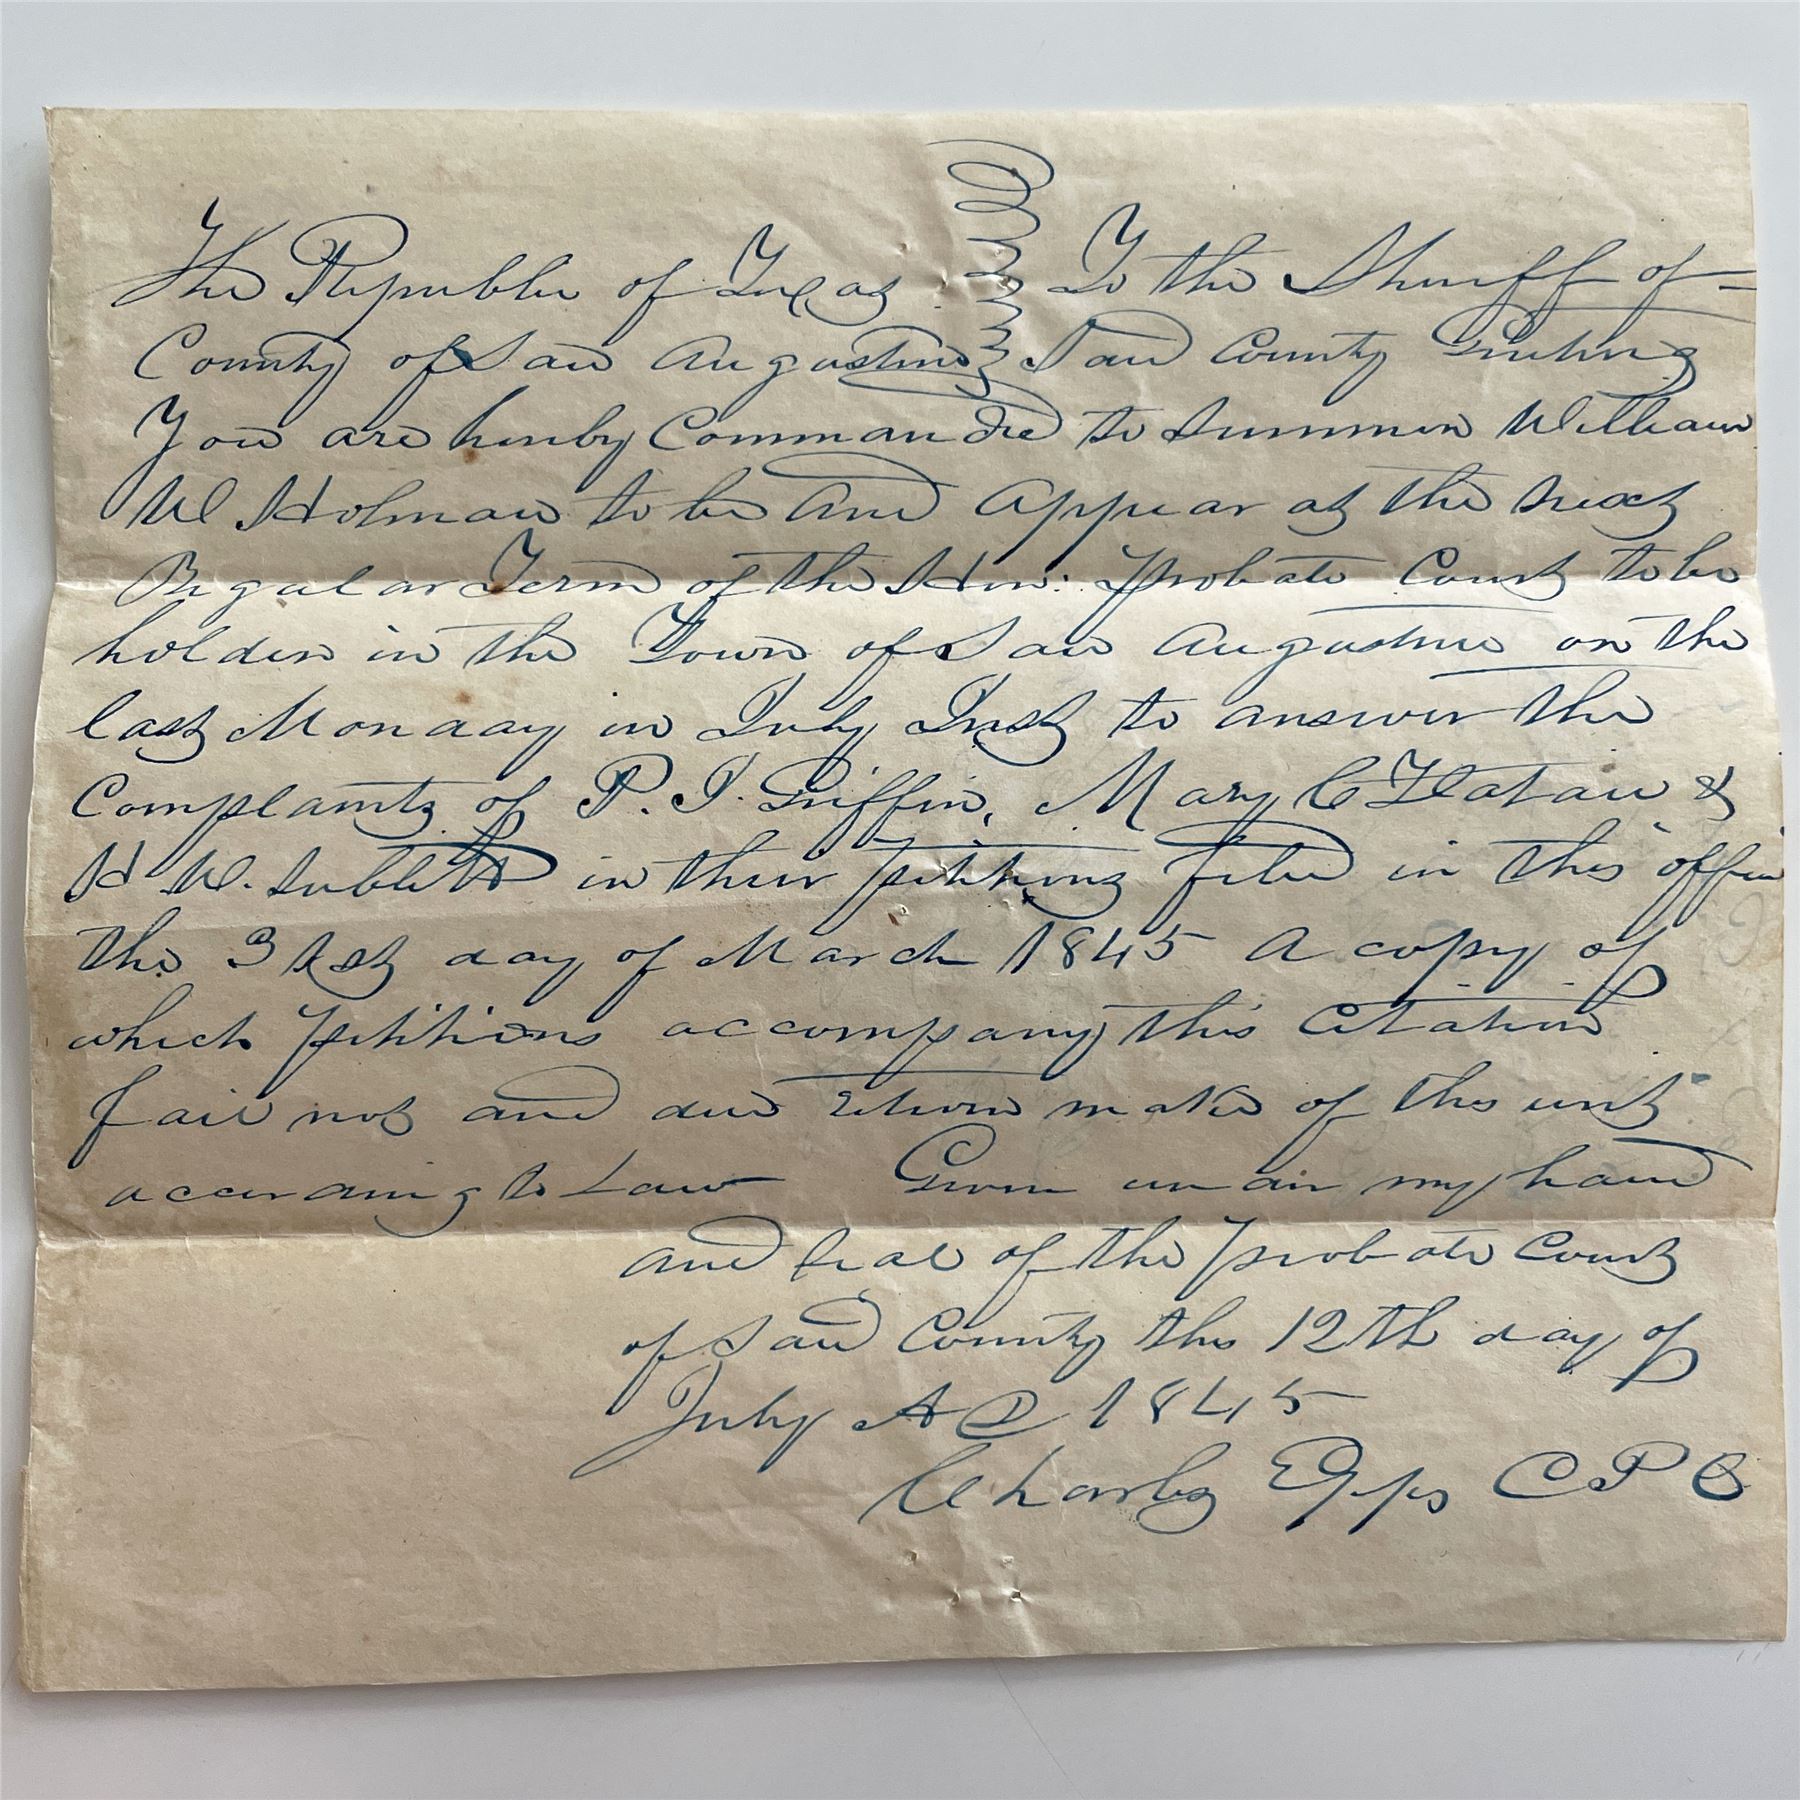 The Republic of Texas To the Sheriff of
County of San Augustine Said County Greeting
You are hereby Commanded to Summon William
W Holman to be and appear at the next
Regular Term of the Hon: Probate Court to be
holden in the Town of San Augustine on the
last Monday in July Inst to answer the
Complaints of P. J. Griffin, Mary C Flatau &
H W. Sublett in their petitions filed in this office
the 31st day of March 1845 A copy of
which petitions accompany this Citation
fail not and due return make of this writ
according to Law Given under my hand
and seal of the Probate Court
of Said County this 12th day of
July A D 1845
Charles Epps C P C